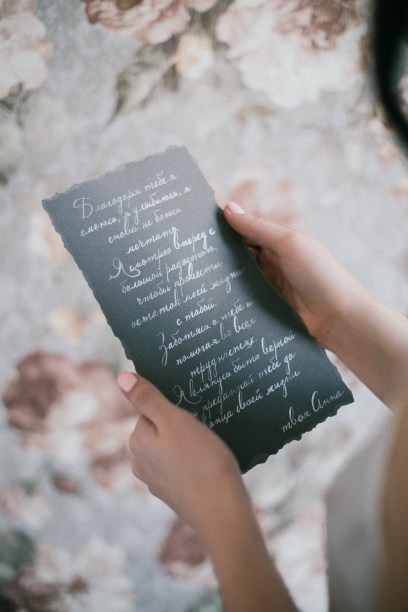 Благодаря тебе я
смеюсь, я улыбаюсь, я
снова не боюсь
мечтать.
Я смотрю вперед с
большой радостью,
чтобы провести
остаток моей жизни
с тобой.
Заботясь о тебе и
помогая во всех
трудностях.
Я клянусь быть верной
и преданной тебе до
конца своей жизни.
твоя Анна